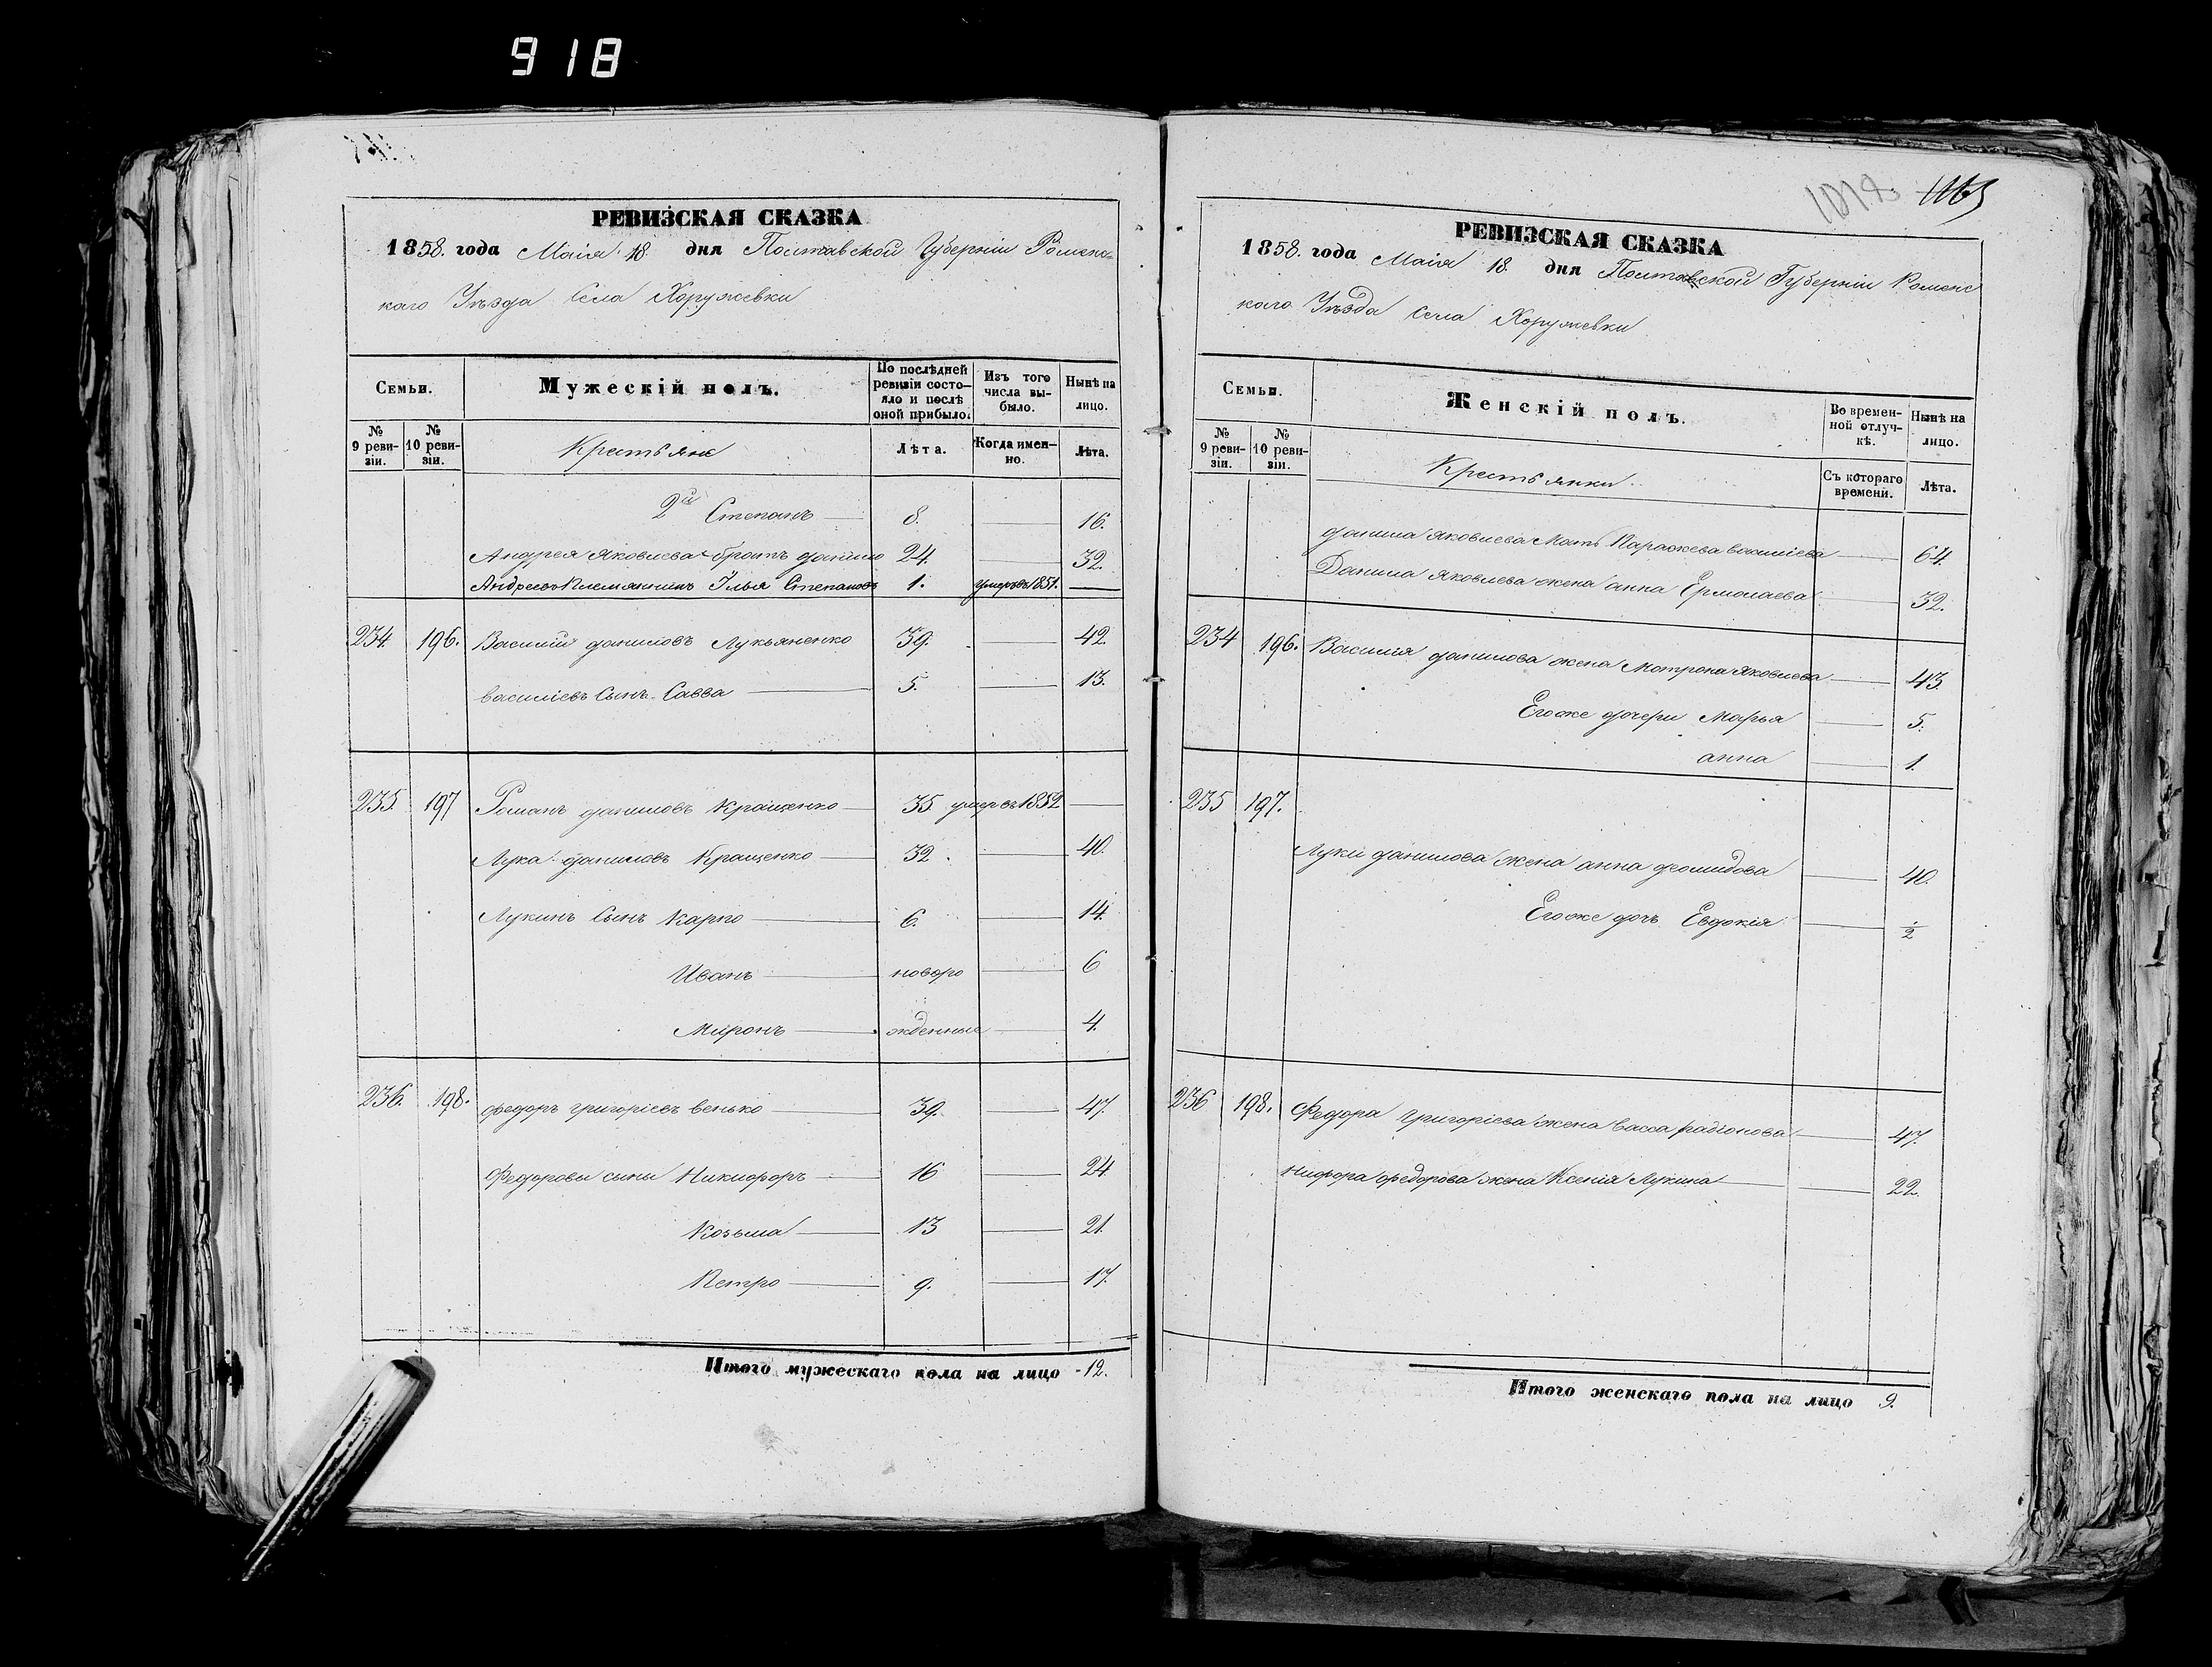 918
РЕВИЗСКАЯ СКАЗКА
1858. года Маія 18. дня Полтавской Губерніи Роменс-
каго Уѣзда Села Хоружевки
Семьи.
Мужескій полъ.
По послѣдней ревизіи состо-
яло и послѣ оной прибыло.
Изъ того числа вы-
было.
Нынѣ на лицо.
№ 9 реви-
зіи.
№ 10 реви-
зіи.
Крестьяне
Лѣта.
Когда имен-
но.
Лѣта.
2й Степанъ 8. 16.
Андрея Яковлева братъ Данило 24. 32.
Андреевъ Племянникъ Илья Степановъ 1. умеръ въ 1851.
234. 196. Василій Даниловъ Лукьяненко 39. 42.
Василіевъ Сынъ Савва 5. 13.
235. 197 Романъ Даниловъ Кращенко 35 умеръ въ 1852
Лука Даниловъ Кращенко 32. 40.
Лукинъ Сынъ Карпо 6. 14.
Иванъ новоро 6
Миронъ жденные 4.
236. 198. Федоръ Григоріевъ Венько 39. 47.
Федоровы сыны Никифоръ 16 24
Козьма 13 21.
Петро 9. 17.
Итого мужескаго пола на лицо 12.
1163
РЕВИЗСКАЯ СКАЗКА
1858. года Маія 18. дня Полтавской Губерніи Роменс
каго Уѣзда Села Хоружевки
Семьи.
Женскій полъ.
Во времен-
ной отлуч-
кѣ.
Нынѣ на лицо.
№ 9 реви-
зіи.
№ 10 реви-
зіи.
Крестьянки
Съ котораго времени.
Лѣта.
Данила Яковлева Мать Параскева Василіева 64.
Данила Яковлева жена Анна Ермолаева 32.
234 196. Василія Данилова жена Мотрона Яковлева 43.
Его же дочери Марья 5.
Анна 1.
235 197.
Луки Данилова жена Анна Деомидова 40.
Его же дочь Евдокія 1/2
236 198. Федора Григоріева жена Васса Радіонова 47.
Нифора Федорова жена Ксенія Лукина 22.
Итого женскаго пола на лицо 9.